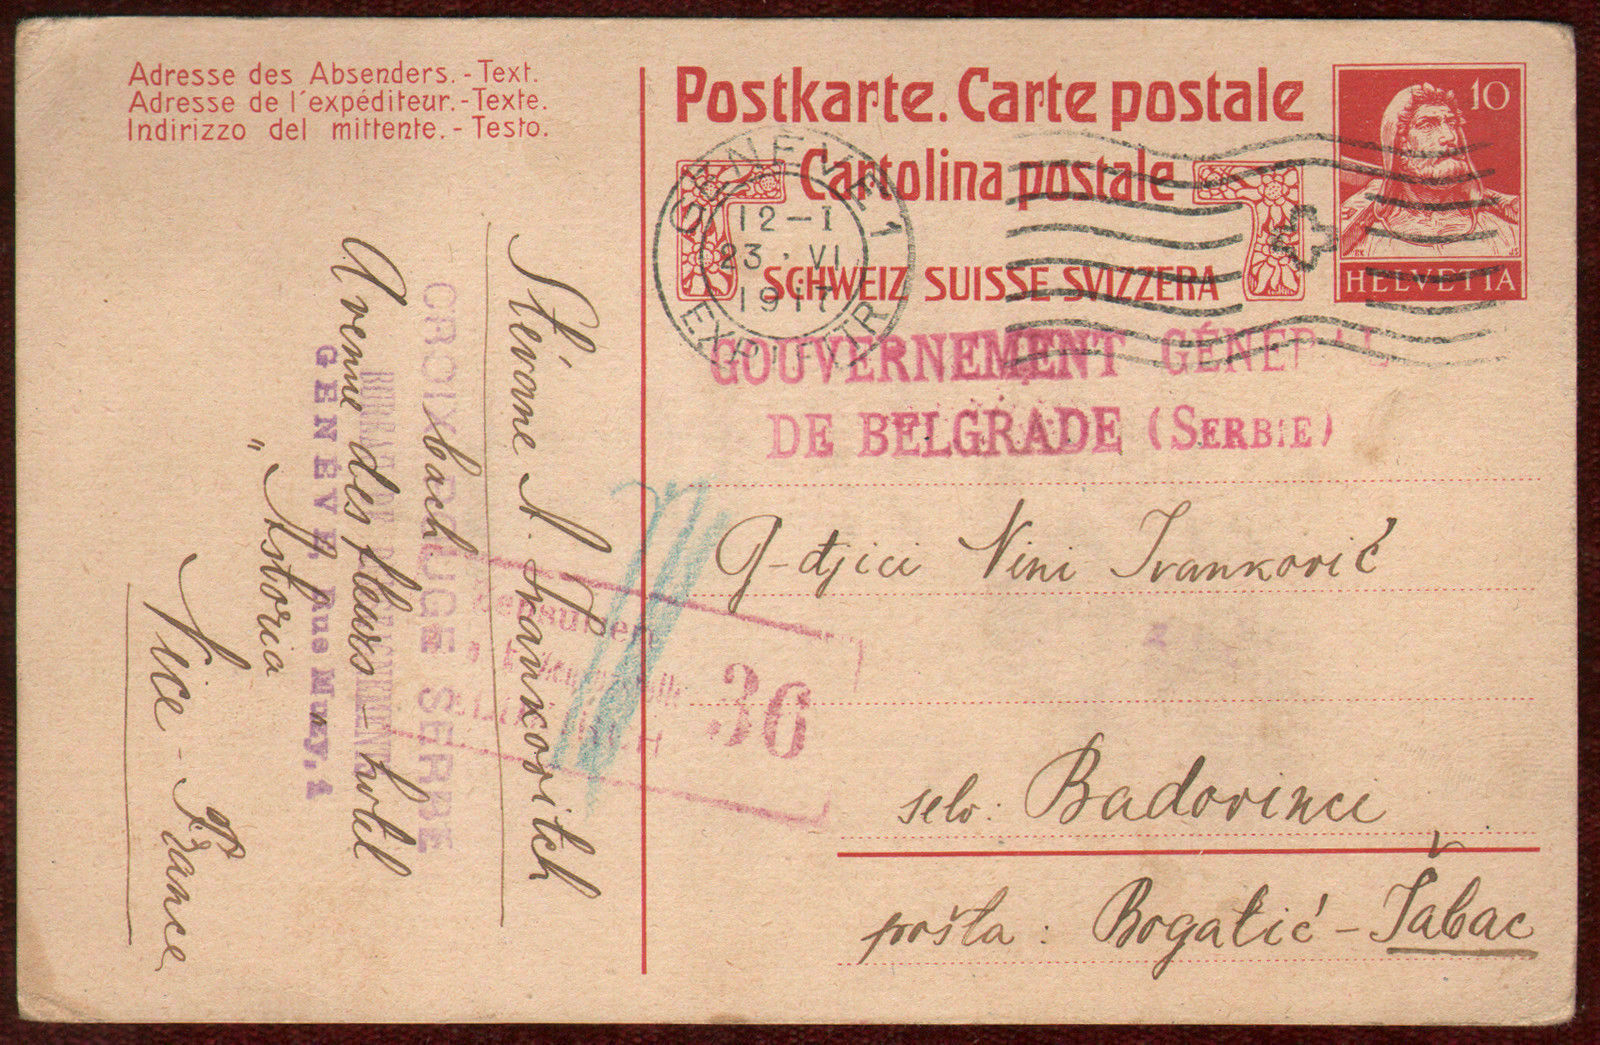 Adresse des Absenders. - Text.
Adresse de l'expéditeur. - Texte.
Indirizzo del mittente. - Testo.
Postkarte. Carte postale
Cartolina postale
SCHWEIZ SUISSE SVIZZERA
10
HELVETIA
GENÈVE 1
12-I
23.VI
1917
EXP. LETTR
GOUVERNEMENT GÉNÉRAL
DE BELGRADE (SERBIE)
G-djici Nini Ivanković
selo: Badovinci
pošta: Bogatić - Šabac
36
Stévane A. Ivankovitch
bach
Avenue des fleurs hotel
"Astoria
Nice - France
CROIX ROUGE SERBE
GENÈVE, Rue Muzy, 1